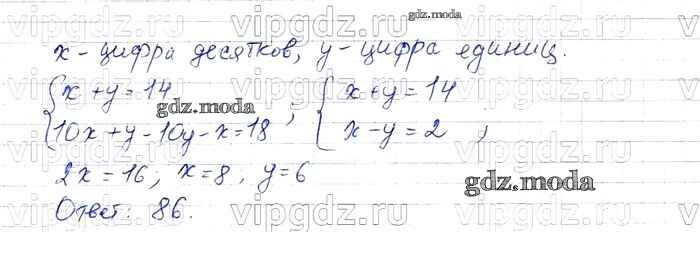 vipgdz.ru vipgdz.ru vipgdz.ru
gdz.moda
x - цифра десятков, y - цифра единиц.
{x + y = 14 ; {x + y = 14
gdz.moda
10x + y - 10y - x = 18 x - y = 2 ;
vipgdz.ru vipgdz.ru vipgdz.ru
2x = 16; x = 8, y = 6
gdz.moda
Ответ: 86.
vipgdz.ru vipgdz.ru vipgdz.ru